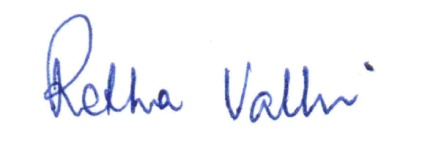 Retha Valli